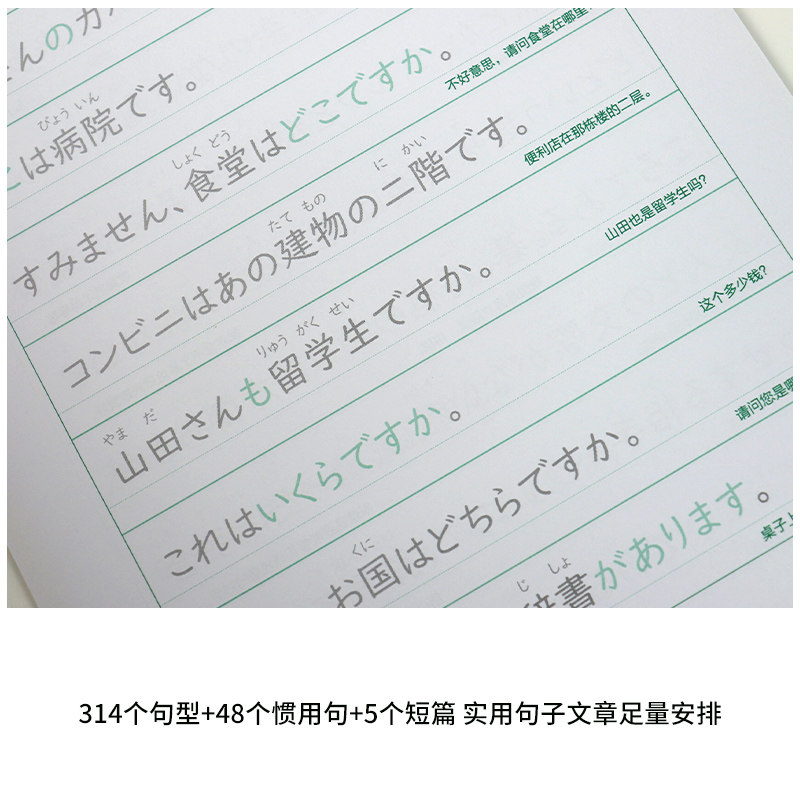 んのカ
びょういん
は病院です。
しょく どう
すみません、食堂はどこですか。
不好意思，请问食堂在哪里?
たて もの に かい
コンビニはあの建物の二階です。
便利店在那栋楼的二层。
やま だ りゅう がく せい
山田さんも留学生ですか。
山田也是留学生吗?
これはいくらですか。
这个多少钱?
くに
お国はどちらですか。
请问您是哪
じ しょ
辞書があります。
桌子上
314个句型+48个惯用句+5个短篇 实用句子文章足量安排